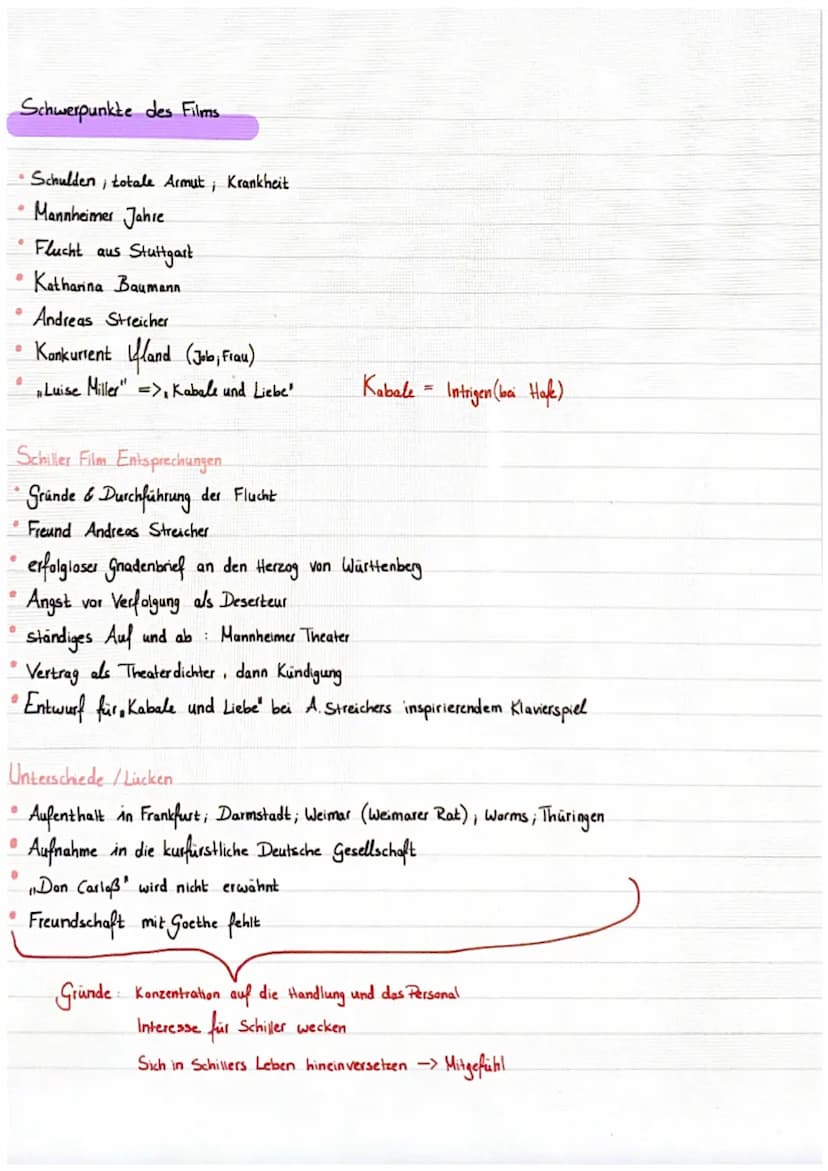 Schwerpunkte des Films
• Schulden ; totale Armut ; Krankheit
• Mannheimer Jahre
• Flucht aus Stuttgart
• Katharina Baumann
• Andreas Streicher
• Konkurrent Iffland (Job; Frau)
• „Luise Miller" => „Kabale und Liebe" Kabale = Intrigen (bei Hofe)
Schiller Film Entsprechungen
• Gründe & Durchführung der Flucht
• Freund Andreas Streicher
• erfolgloser Gnadenbrief an den Herzog von Württenberg
• Angst vor Verfolgung als Deserteur
• ständiges Auf und ab : Mannheimer Theater
• Vertrag als Theaterdichter, dann Kündigung
• Entwurf für „Kabale und Liebe" bei A. Streichers inspirierendem Klavierspiel
Unterschiede / Lücken
• Aufenthalt in Frankfurt; Darmstadt; Weimar (Weimarer Rat) ; Worms ; Thüringen
• Aufnahme in die kurfürstliche Deutsche Gesellschaft
• „Don Carloß" wird nicht erwähnt
• Freundschaft mit Goethe fehlt
Gründe: Konzentration auf die Handlung und das Personal
Interesse für Schiller wecken
Sich in Schillers Leben hineinversetzen -> Mitgefühl